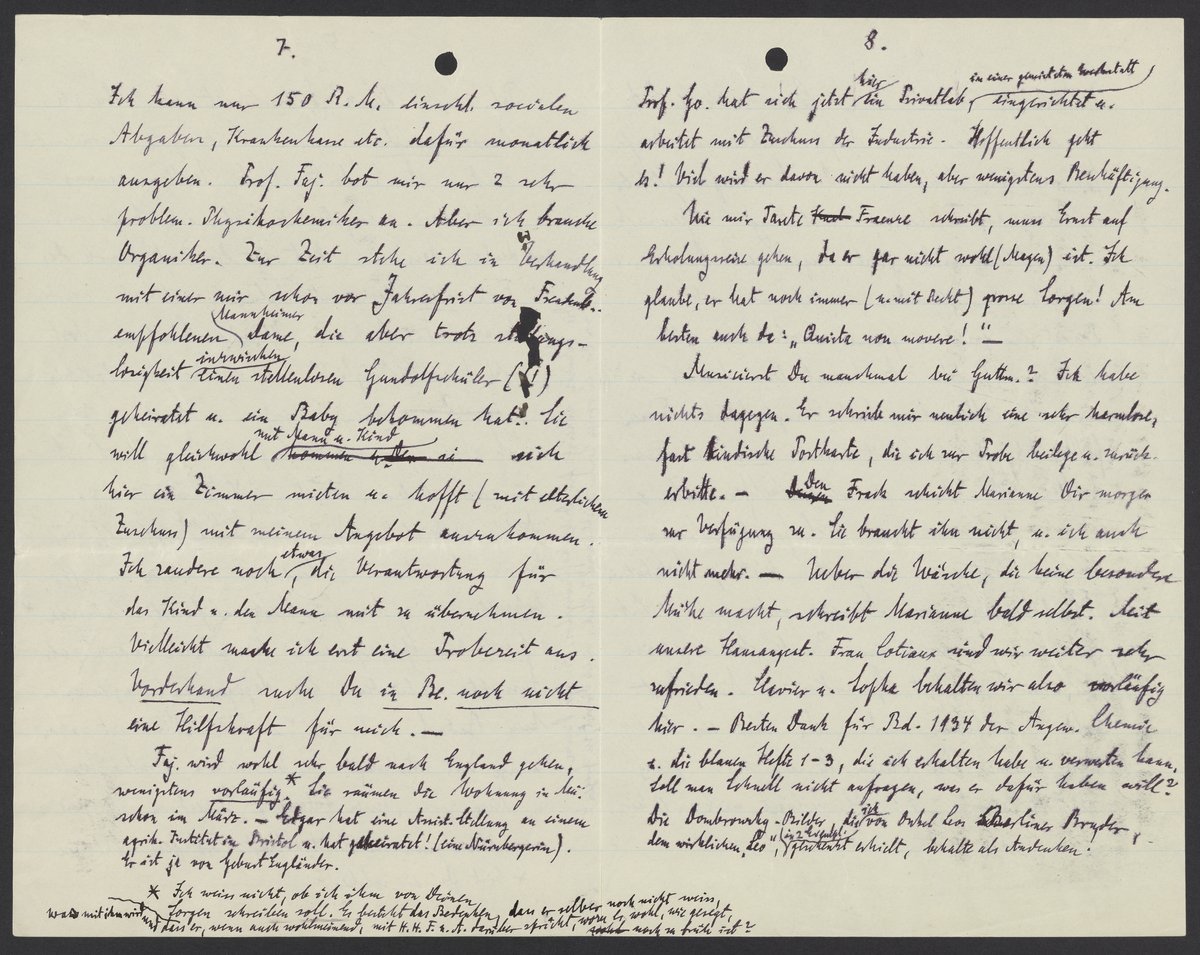 7.
Ich kann nur 150 R.M. einschl. socialen
Abgaben, Krankenkasse etc. dafür monatlich
ausgeben. Prof. Faj. bot mir nur 2 sehr
problem. Physikochemiker an. Aber ich brauche
Organiker. Zur Zeit stehe ich in Verhandlung
mit einer mir schon vor Jahresfrist von
empfohlenen Mannheimer Dame, die aber trotz stellungs-
losigkeit inzwischen einen stellenlosen Gundolfschüler (!)
geheiratet u. ein Baby bekommen hat! Sie
will gleichwohl mit Mann u. Kind sich
hier ein Zimmer mieten u. hofft (mit elterlichem
Zuschuss) mit meinem Angebot auszukommen.
Ich zaudere noch etwas, die Verantwortung für
das Kind u. den Mann mit zu übernehmen.
Vielleicht mache ich erst eine Probezeit aus.
Vorderhand suche Du in Be. noch nicht
eine Hilfskraft für mich. —
Faj. wird wohl sehr bald nach England gehen,
wenigstens vorläufig.* Sie räumen die Wohnung in Mü.
schon im März. — Edgar hat eine Assist. Stellung an einem
agrik. Institut in Bristol u. hat geheiratet! (eine Nürnbergerin).
Er ist ja von Geburt Engländer.
* Ich weiss nicht, ob ich ihm von Deinen
Sorgen schreiben soll. Es besteht das Bedenken, dass er selber noch nicht weiss,
was mit ihm wird und dass er, wenn auch wohlmeinend, mit H.H.F. u. A. darüber spricht, wozu es, wohl, wie gesagt,
noch zu früh ist?
8.
Prof. Go. hat sich jetzt hier ein Privatlab. in einer gemieteten Werkstatt eingerichtet u.
arbeitet mit Zuschuss der Industrie. Hoffentlich geht
es! Viel wird er davon nicht haben, aber wenigstens Beschäftigung.
Wie mir Tante Fraenze schreibt, muss Ernst auf
Erholungsreise gehen, da er gar nicht wohl (Magen) ist. Ich
glaube, er hat noch immer (u. mit Recht) grosse Sorgen! Am
besten auch da: „Quieta non movere!" —
Musicierst Du manchmal bei Guttm.? Ich habe
nichts dagegen. Er schrieb mir neulich eine sehr harmlose,
fast kindische Postkarte, die ich zur Probe beilege u. zurück-
erbitte. — Den Frack schickt Marianne Dir morgen
zur Verfügung zu. Sie braucht ihn nicht, u. ich auch
nicht mehr. — Ueber die Wäsche, die keine besondere
Mühe macht, schreibt Marianne bald selbst. Mit
unsere Hausangest. Frau Cotiaux sind wir weiter sehr
zufrieden. Clavier u. Sopha behalten wir also vorläufig
hier. — Besten Dank für Bd. 1934 der Angew. Chemie
u. die blauen Hefte 1–3, die ich erhalten habe u. verwerten kann.
Soll man Schnell nicht anfragen, was er dafür haben will?
Die Dombrowsky-Bilder, die ich von Onkel Leos Berliner Bruder,
dem wirklichen „Leo", geschenkt erhielt, behalte als Andenken!